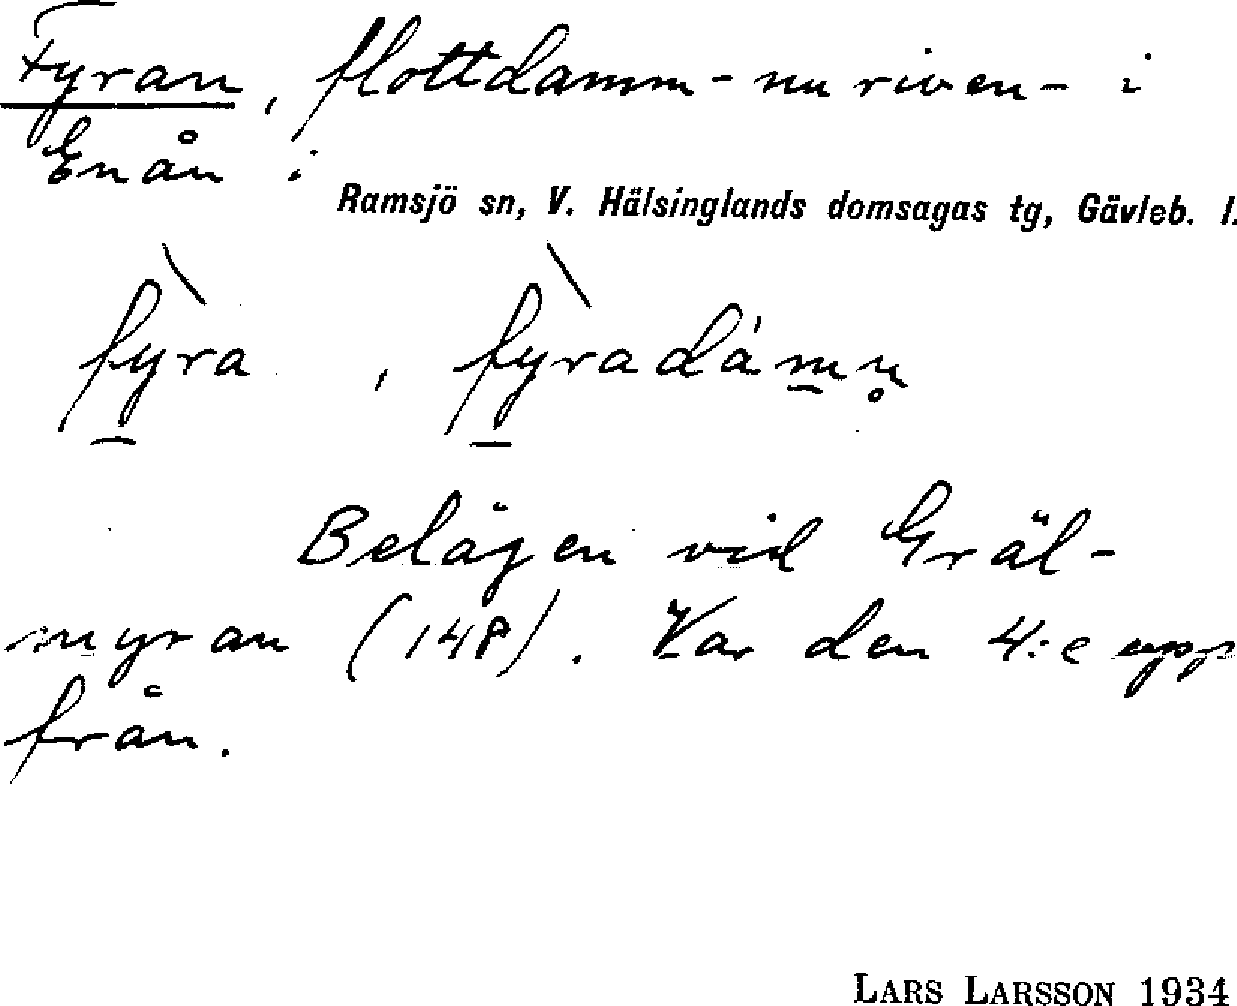 Fyran, flottdamm - nu riven - i
Enån i
Ramsjö sn, V. Hälsinglands domsagas tg, Gävleb. l.
fỳra, fỳradámn̥
Belägen vid Gräl-
myran (148). Var den 4:e upp
från.
LARS LARSSON 1934